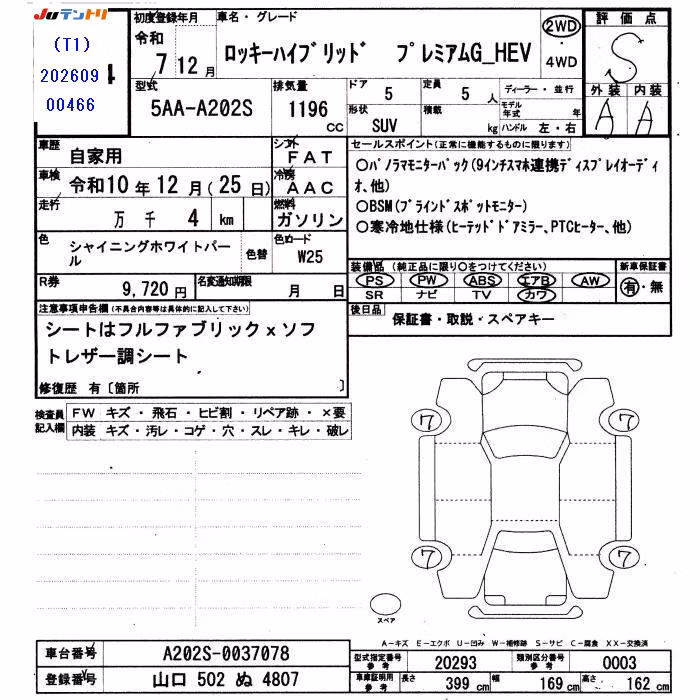 JUテントリ
(T1)
202609
00466
初度登録年月
令和
7 12 月
車名・グレード
ロッキーハイブリッド プレミアムG_HEV
2WD
4WD
評価点
S
外装 内装
A A
型式
5AA-A202S
排気量
1196
cc
ドア
5
定員
5 人
形状
SUV
積載
kg
ディーラー・並行
モデル年式 年
ハンドル 左・右
車歴
自家用
シフト
FAT
車検
令和10 年 12 月 (25 日)
冷房
AAC
走行
万 千 4 km
燃料
ガソリン
色
シャイニングホワイトパール
色替
色コード
W25
R券
9,720 円
名変通知期限
月 日
セールスポイント(正常に機能するものに限ります)
○パノラマモニターパック(9インチスマホ連携ディスプレイオーディ
オ、他)
○BSM(ブラインドスポットモニター)
○寒冷地仕様(ヒーテッドドアミラー、PTCヒーター、他)
装備品 (純正品に限り○をつけてください)
PS PW ABS エアB AW
SR ナビ TV カワ
新車保証書
有・無
後日品
保証書・取説・スペアキー
注意事項申告欄(不具合内容等は具体的に記入して下さい)
シートはフルファブリックxソフ
トレザー調シート
修復歴 有〔箇所 〕
検査員
記入欄
FW キズ・飛石・ヒビ割・リペア跡・×要
内装 キズ・汚レ・コゲ・穴・スレ・キレ・破レ
7 7
7 7
スペア
A-キズ E-エクボ U-凹み W-補修跡 S-サビ C-腐食 XX-交換済
車台番号
A202S-0037078
登録番号
山口 502 ぬ 4807
型式指定番号
参考
20293
類別区分番号
参考
0003
車庫証明用
参考
長さ
399 cm
幅
169 cm
高さ
162 cm